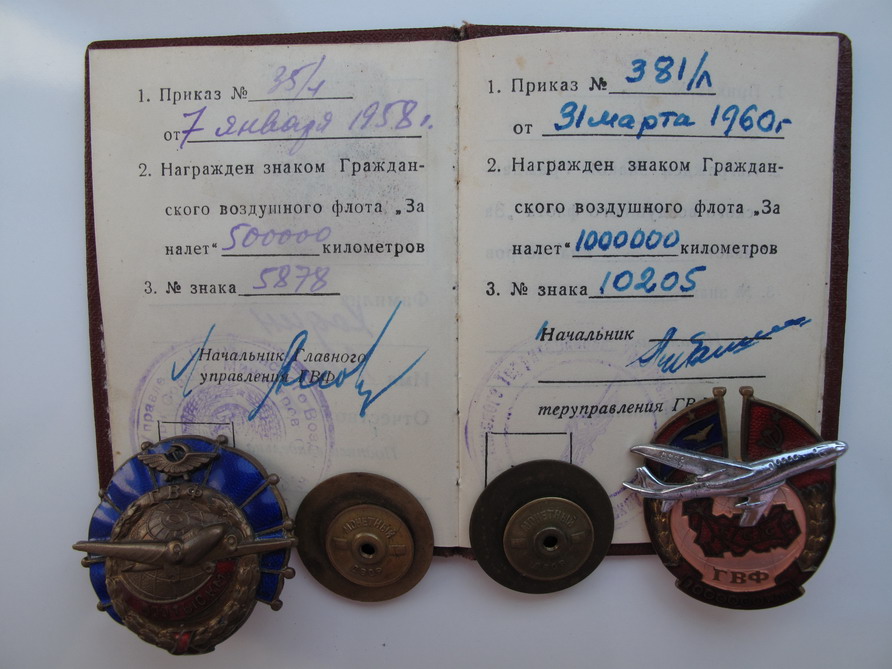 1. Приказ № 35/л
от 7 января 1958 г.
2. Награжден знаком Граждан-
ского воздушного флота „За
налет“ 500000 километров
3. № знака 5878
Начальник Главного
управления ГВФ
1. Приказ № 381/л
от 31 марта 1960 г
2. Награжден знаком Граждан-
ского воздушного флота „За
налет“ 1000000 километров
3. № знака 10205
Начальник
теруправления
ГВФ
МОНЕТНЫЙ
МОНЕТНЫЙ
СССР
ГВФ